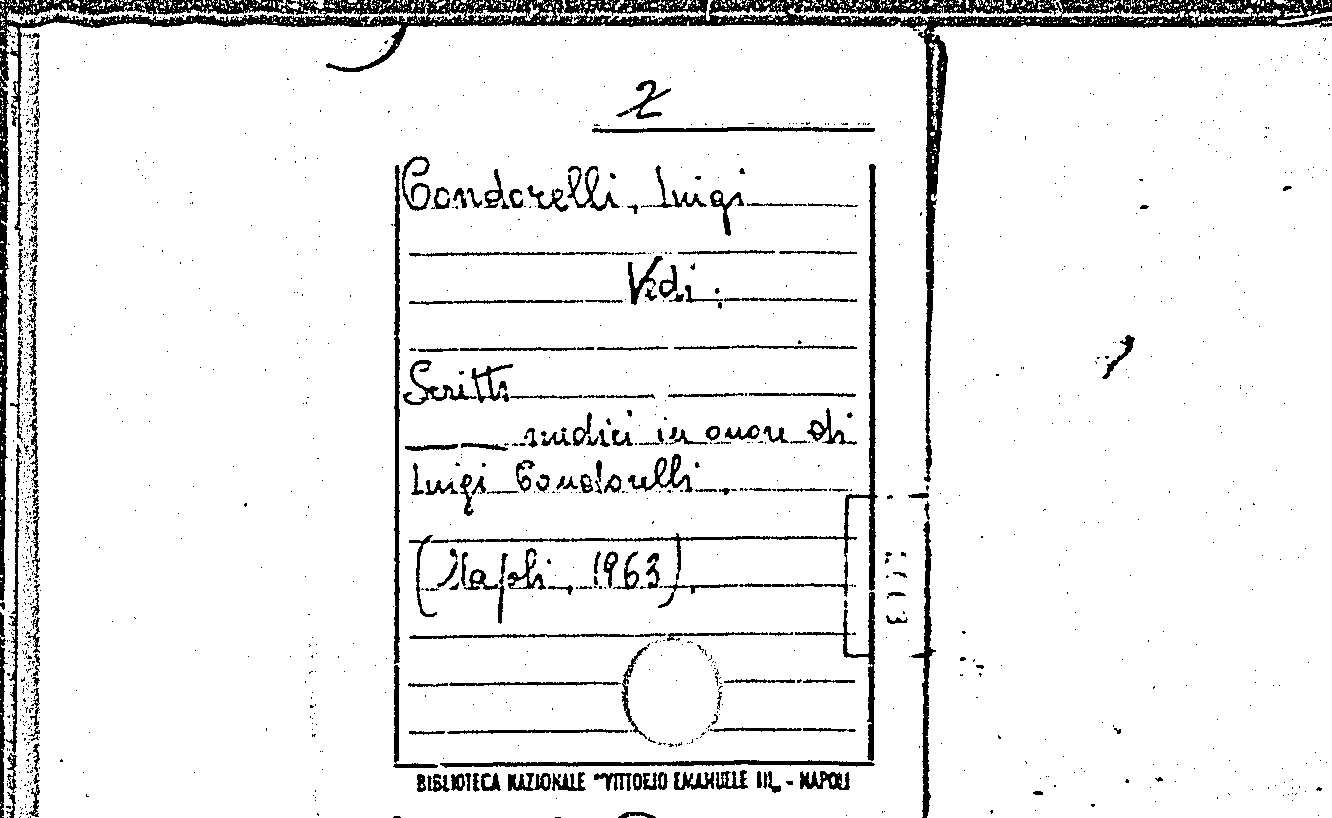 2
Condorelli, Luigi
Vedi:
Scritti
medici in onore di
Luigi Condorelli.
(Napoli, 1963).
BIBLIOTECA NAZIONALE "VITTORIO EMANUELE III" - NAPOLI